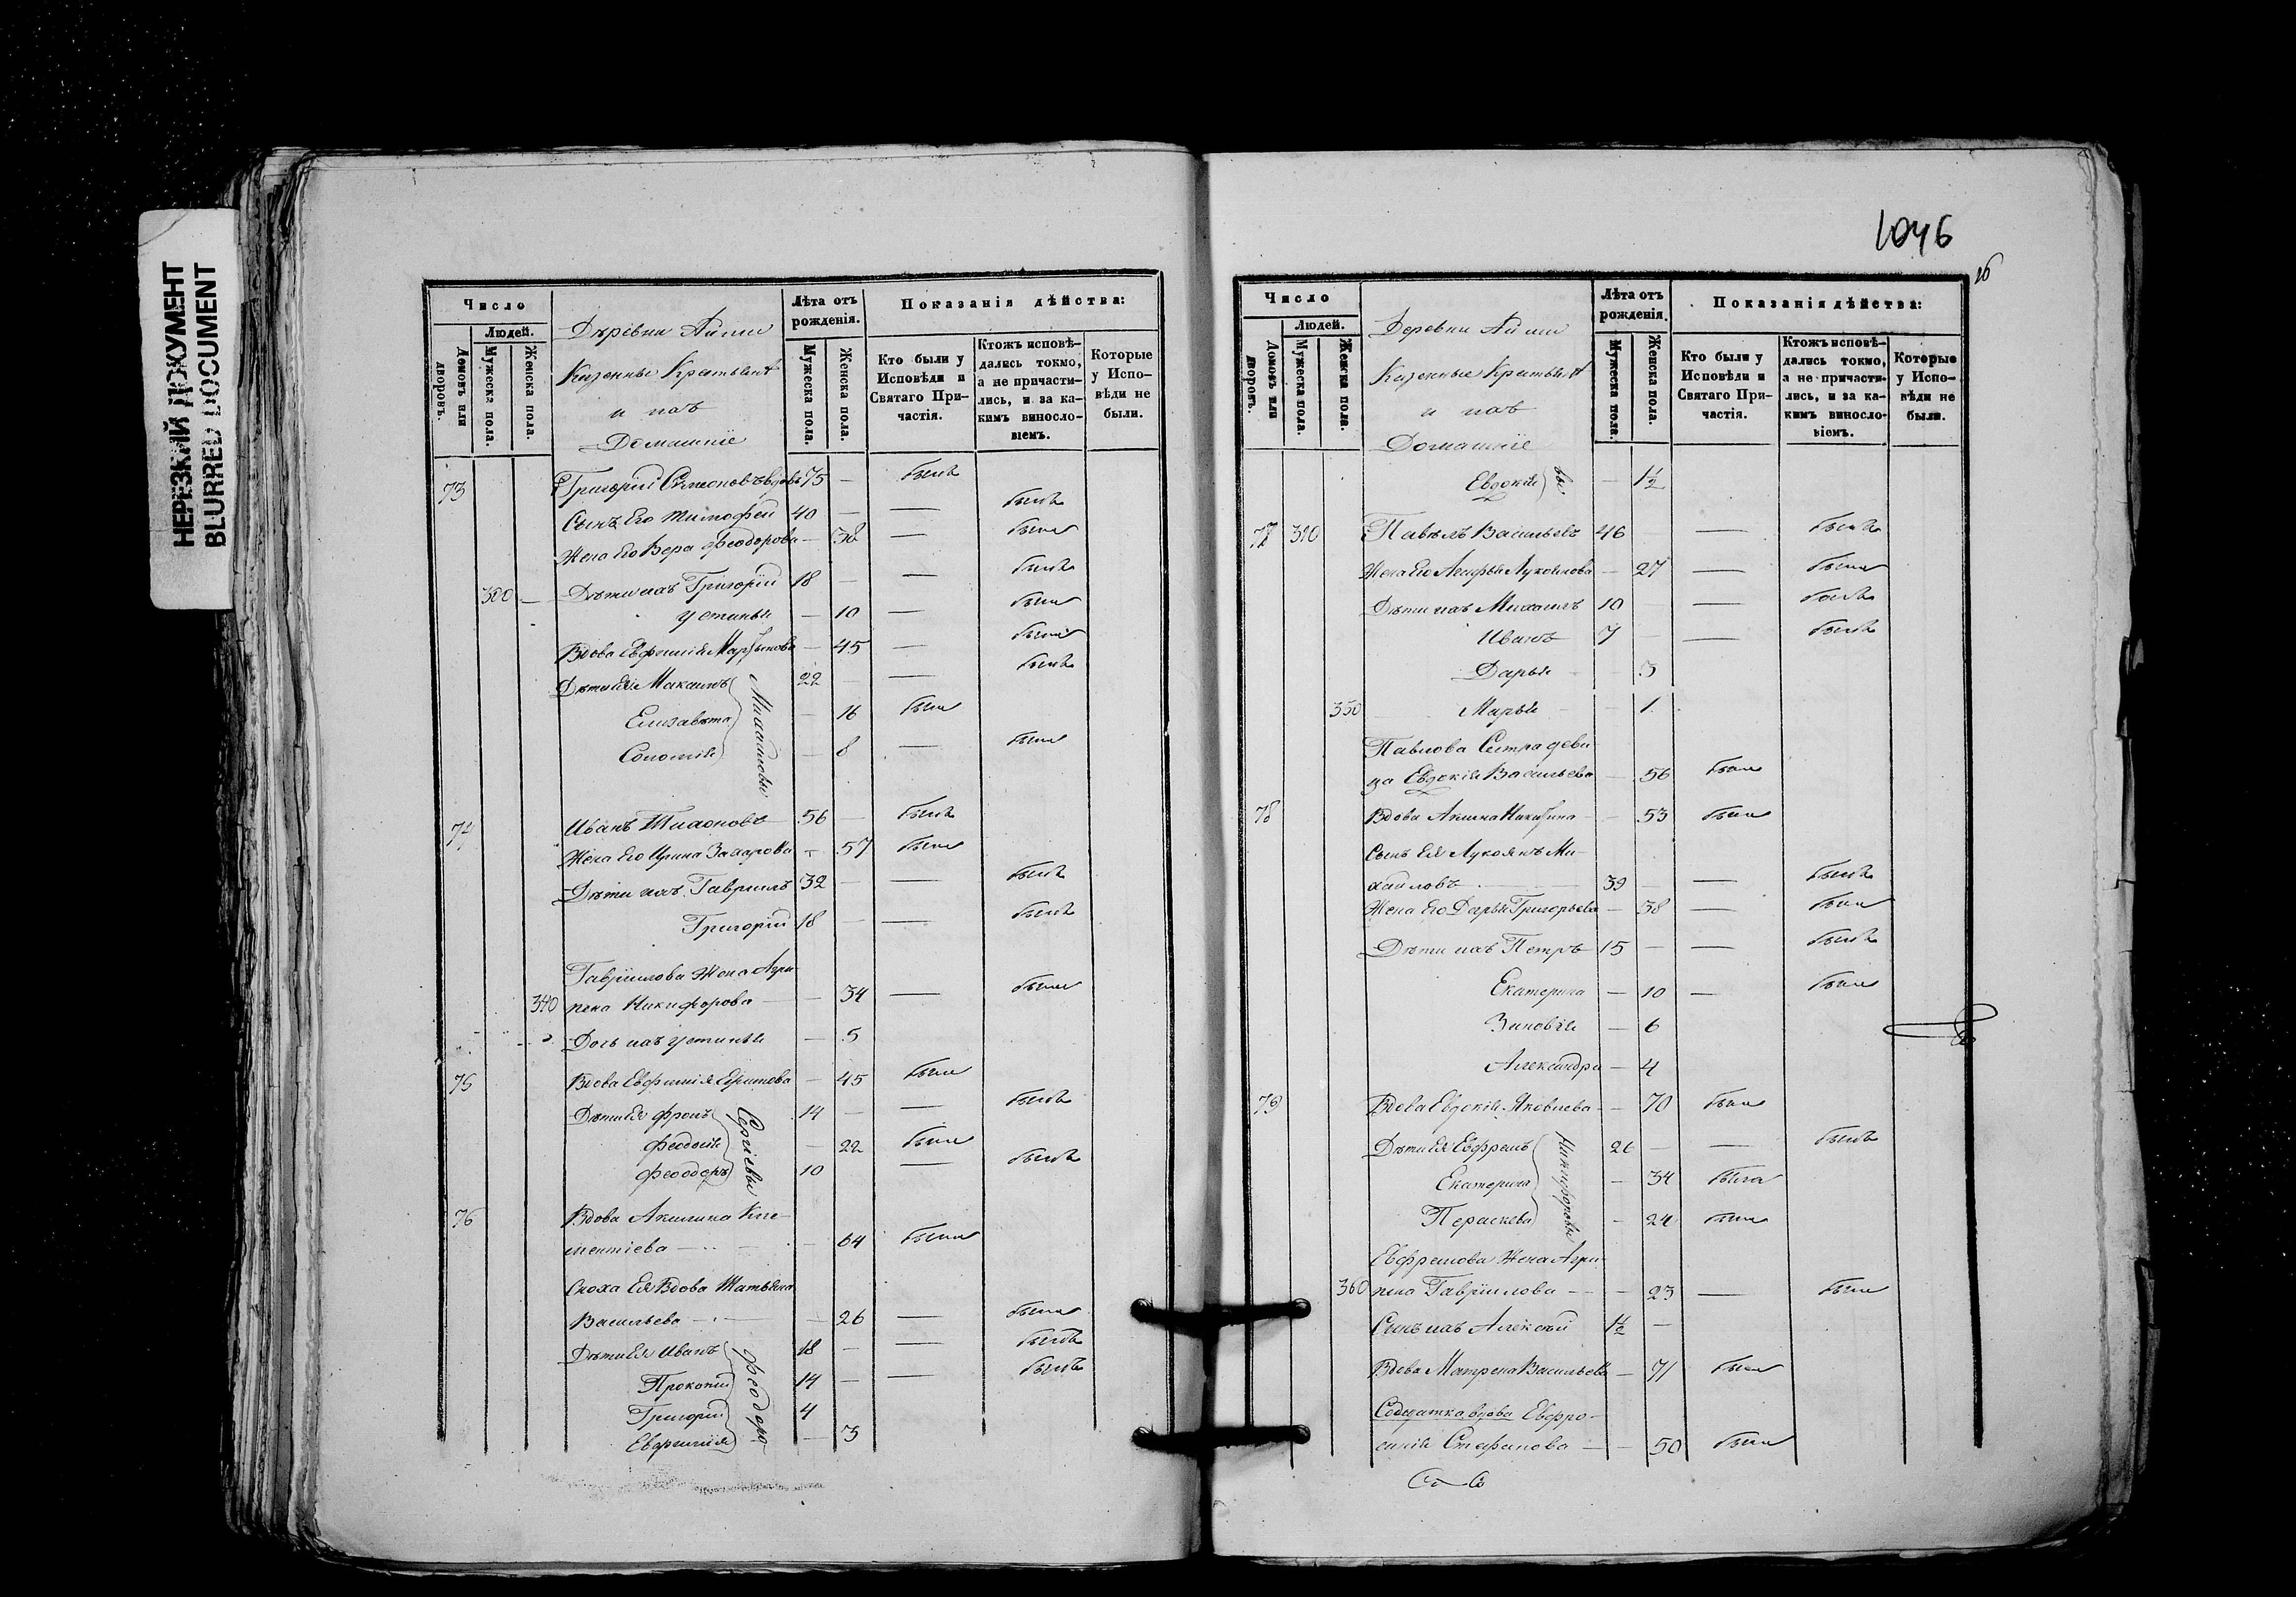 НЕРЕЗКИЙ ДОКУМЕНТ
BLURRED DOCUMENT
Число
Людей.
Домовъ или дворовъ.
Мужеска пола.
Женска пола.
Деревни Айши
Казенные Крестьяне
и ихъ
Домашніе
Лѣта отъ рожденія.
Мужеска пола.
Женска пола.
Показанія дѣйства:
Кто были у Исповѣди и Святаго При-частія.
Ктожъ исповѣ-дались токмо, а не причасти-лись, и за ка-кимъ винosло-віемъ.
Которые у Испо-вѣди не были.
73 Григорій Симеоновъ вдовъ 75 — былъ
Сынъ Его Тимофей 40 — — былъ
Жена Его Вера Феодорова — 38 — была
300 — Дѣти ихъ Григорій 18 — — былъ
Устинья — 10 — была
Вдова Евфимія Мартынова — 45 — была
Дѣти Ея Максимъ 22 — — былъ
Елизавета — 16 была
Соломія — 8 — была
Михайловы
74 Иванъ Тихоновъ 56 — былъ
Жена Его Ирина Захарова — 57 была
Дѣти ихъ Гавріилъ 32 — — былъ
Григорій 18 — — былъ
Гавріилова Жена Агри-
340 пена Никифорова — 34 — была
Дочь ихъ Устинья — 5
75 Вдова Евфимія Ефимова — 45 была
Дѣти Ея Фролъ 14 — — былъ
Феодосія — 22 была
Феодоръ 10 — былъ
Сергіевы
76 Вдова Акилина Кле-
ментіева — 64 была
Сноха Ея Вдова Татьяна
Васильева — 26 — была
Дѣти Ея Иванъ 18 — — былъ
Прокопій 14 — — былъ
Григорій 4
Евфимія — 3
Феодоро-
1046
16
Число
Людей.
Домовъ или дворовъ.
Мужеска пола.
Женска пола.
Деревни Айши
Казенные Крестьяне
и ихъ
Домашніе
Лѣта отъ рожденія.
Мужеска пола.
Женска пола.
Показанія дѣйства:
Кто были у Исповѣди и Святаго При-частія.
Ктожъ исповѣ-дались токмо, а не причасти-лись, и за ка-кимъ винosло-віемъ.
Которые у Испо-вѣди не были.
Евдокія вы — 1½
77 310 Павелъ Васильевъ 46 — былъ
Жена Его Лукоянова — 27 — была
Дѣти ихъ Михаилъ 10 — былъ
Иванъ 7 — былъ
Дарья 3
350 Марья — 1
Павлова Сестра деви-
ца Евдокія Васильева — 56 была
78 Вдова Акилина Никитина — 53 была
Сынъ Ея Лукоянъ Ми-
хайловъ 39 — — былъ
Жена Его Дарья Григорьева — 38 — была
Дѣти ихъ Петръ 15 — — былъ
Екатерина — 10 — была
Зиновія — 6
Александра — 4
79 Вдова Евдокія Яковлева — 70 была
Дѣти Ея Евфремъ 26 — — былъ
Екатерина — 34 была
Параскева — 24 была
Никифоровы
Евфремова Жена Агри-
360 пена Гавріилова — 23 — была
Сынъ ихъ Алексѣй 1½ —
Вдова Матрена Васильева — 71 была
Солдатка вдова Евфро-
синія Стефанова — 50 была